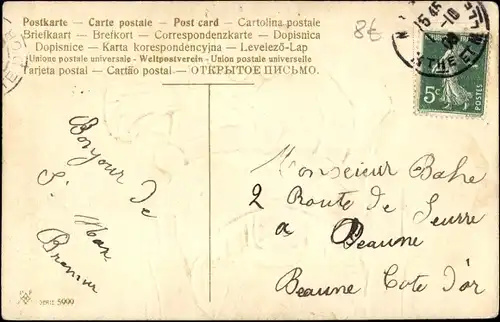 Postkarte - Carte postale - Post card - Cartolina postale
Briefkaart - Brefkort - Correspondenzkarte - Dopisnica
Dopisnice - Karta korespondencyjna - Levelező-Lap
Unione postale universale - Weltpostverein - Union postale universelle
Tarjeta postal - Cartão postal - ОТКРЫТОЕ ПИСЬМО.
8€
15 45
-10
THE ET M
5c
POSTES
Bonjour de
St Max
Monsieur Bahe
2 Route de Seurre
a Beaune
Beaune Cote d'or
SERIE 5900